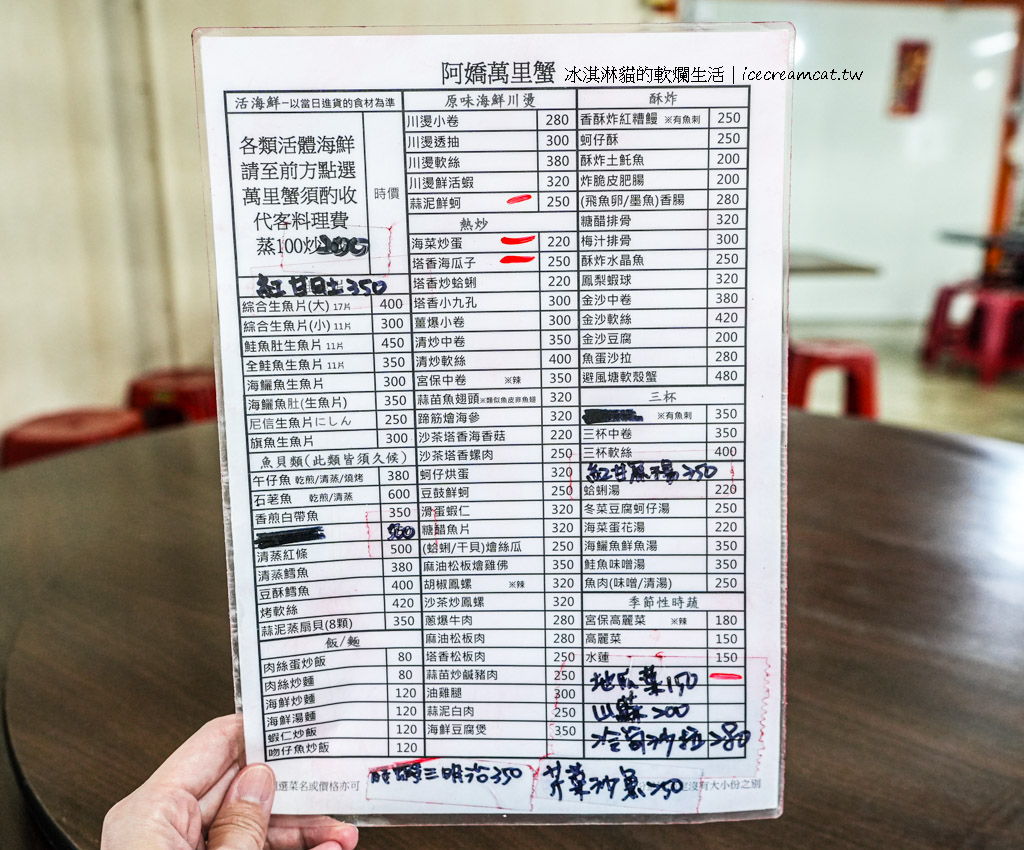 阿嬌萬里蟹
冰淇淋貓的軟爛生活 | icecreamcat.tw
活海鮮－以當日進貨的食材為準
各類活體海鮮
請至前方點選
萬里蟹須酌收
代客料理費
蒸100炒
時價
紅甘 350
綜合生魚片(大) 17片 400
綜合生魚片(小) 11片 300
鮭魚肚生魚片 11片 450
全鮭魚生魚片 11片 350
海鱺魚生魚片 300
海鱺魚肚(生魚片) 350
尼信生魚片にしん 250
旗魚生魚片 300
魚貝類(此類皆須久候)
午仔魚 乾煎/清蒸/燒烤 380
石荖魚 乾煎/清蒸 600
香煎白帶魚 350
清蒸紅條 500
清蒸鱈魚 380
豆酥鱈魚 400
烤軟絲 420
蒜泥蒸扇貝(8顆) 350
飯/麵
肉絲蛋炒飯 80
肉絲炒麵 80
海鮮炒麵 120
海鮮湯麵 120
蝦仁炒飯 120
吻仔魚炒飯 120
原味海鮮川燙
川燙小卷 280
川燙透抽 300
川燙軟絲 380
川燙鮮活蝦 320
蒜泥鮮蚵 250
熱炒
海菜炒蛋 220
塔香海瓜子 250
塔香炒蛤蜊 220
塔香小九孔 300
薑爆小卷 300
清炒中卷 350
清炒軟絲 400
宮保中卷 ※辣 350
蒜苗魚翅頭※類似魚皮非魚翅 320
蹄筋燴海參 320
沙茶塔香海香菇 220
沙茶塔香螺肉 250
蚵仔烘蛋 320
豆鼓鮮蚵 250
滑蛋蝦仁 320
糖醋魚片 320
(蛤蜊/干貝)燴絲瓜 250
麻油松板燴雞佛 350
胡椒鳳螺 ※辣 320
沙茶炒鳳螺 320
蔥爆牛肉 280
麻油松板肉 280
塔香松板肉 250
蒜苗炒鹹豬肉 250
油雞腿 300
蒜泥白肉 250
海鮮豆腐煲 350
酥炸
香酥炸紅糟鰻 ※有魚刺 250
蚵仔酥 250
酥炸土魠魚 200
炸脆皮肥腸 200
(飛魚卵/墨魚)香腸 280
糖醋排骨 320
梅汁排骨 300
酥炸水晶魚 250
鳳梨蝦球 320
金沙中卷 380
金沙軟絲 420
金沙豆腐 200
魚蛋沙拉 280
避風塘軟殼蟹 480
三杯
※有魚刺 350
三杯中卷 350
三杯軟絲 400
紅甘魚湯 250
蛤蜊湯 220
冬菜豆腐蚵仔湯 250
海菜蛋花湯 220
海鱺魚鮮魚湯 350
鮭魚味噌湯 350
魚肉(味噌/清湯) 250
季節性時蔬
宮保高麗菜 ※辣 180
高麗菜 150
水蓮 150
地瓜葉150
山蘇200
冷筍沙拉280
三明治350
選菜名或價格亦可
沒有大小份之別